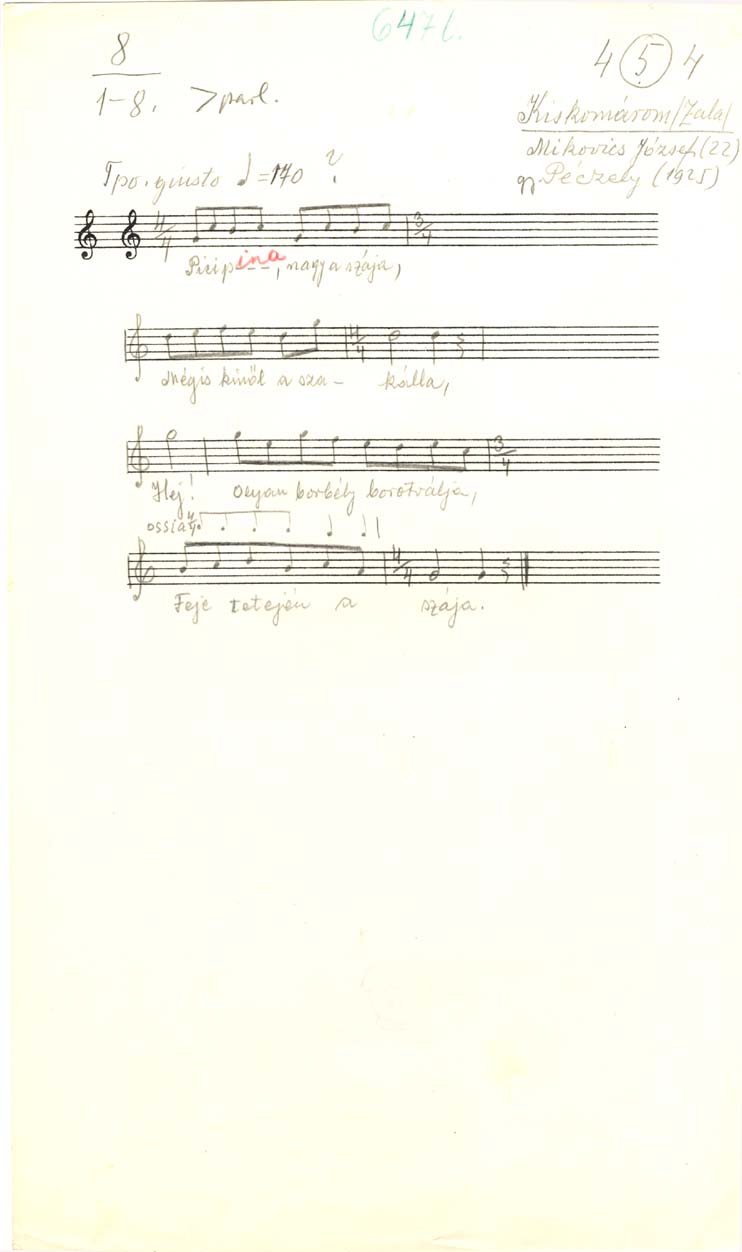 647 l.
8
1-8. >parl.
4 5 4
Kiskomárom /Zala/
Mikovics József (22)
gy. Péczely (1925)
Tpo. giusto ♩=140 ?
4/4 3/4
Piripina, nagy a szája,
4/4
Mégis kinől a sza- kálla,
3/4
Hej! Olyan borbély borotválja,
ossia
4/4
Feje tetején a szája.